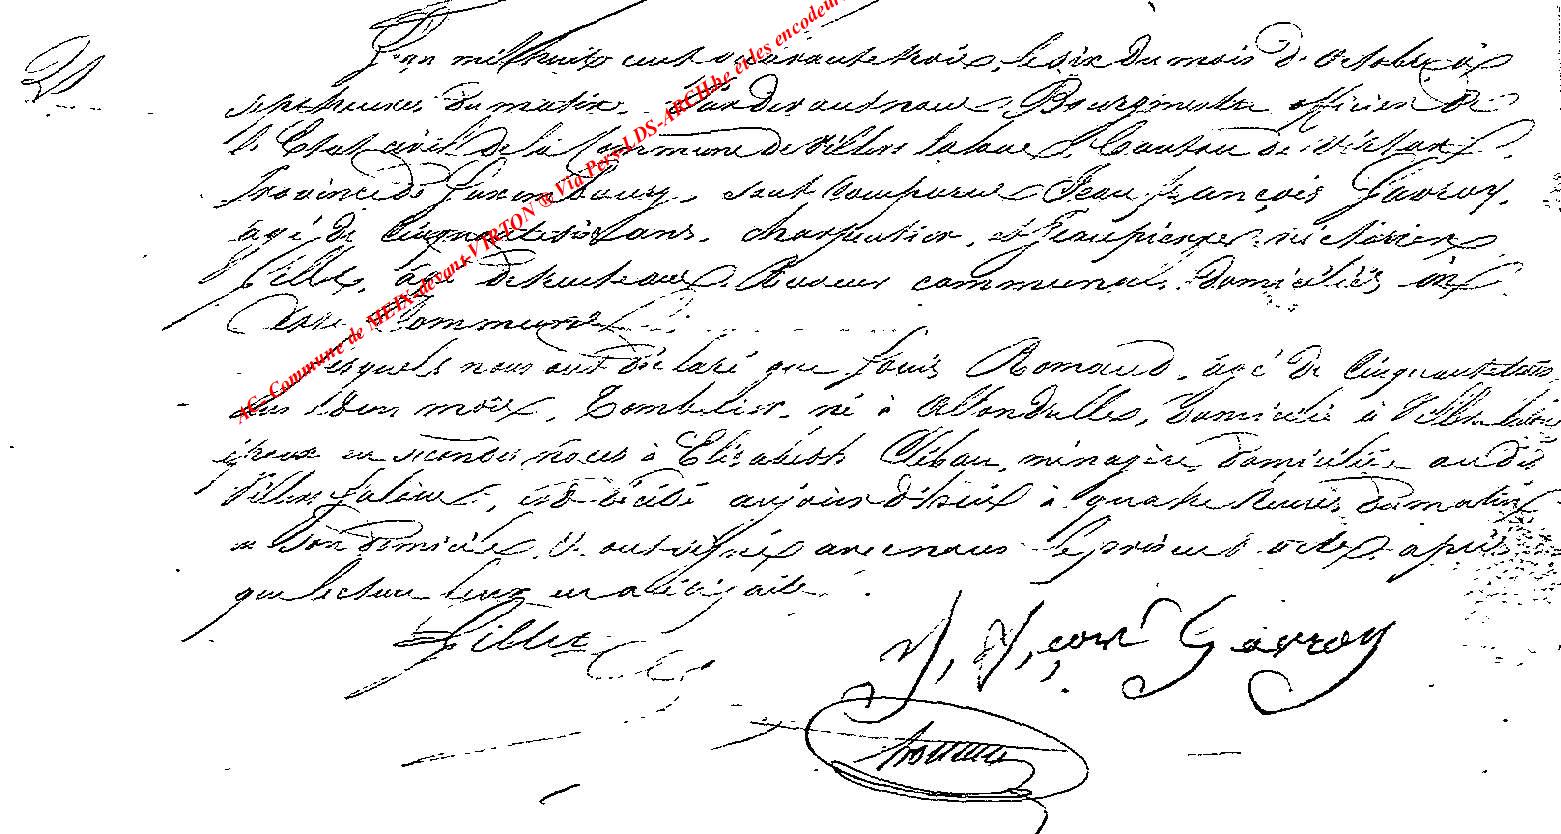 L'an mil huit cent quarante trois, le six du mois d'Octobre à
sept heures du matin. Pardevant nous Bourgmestre officier de
l'Etat civil de la Commune de Villers la loue Canton de Virton,
Province de Luxembourg, sont comparus Jean françois Gavroy,
agé de cinquante ans, charpentier, et Jean pierre
Gillet, agé de trente ans, communal, domiciliés en
Commune
Lesquels nous ont déclaré que Louis Romand, âgé de cinquante trois
ans mois, Tombelier, né à Allondrelle, domicilié à Villers la loue
époux en secondes noces à Elisabeth, ménagère domiciliée au dit
Villers Laloue, est décédé aujourd'hui à quatre heures du matin
en son domicile, & ont signés avec nous le présent acte, après
que lecture leur en a été faite.
Gillet
J. F. Gavroy
AC. Commune de MEIX-devant-VIRTON ® Via Pers-LDS-ARCH.be et les encodeur